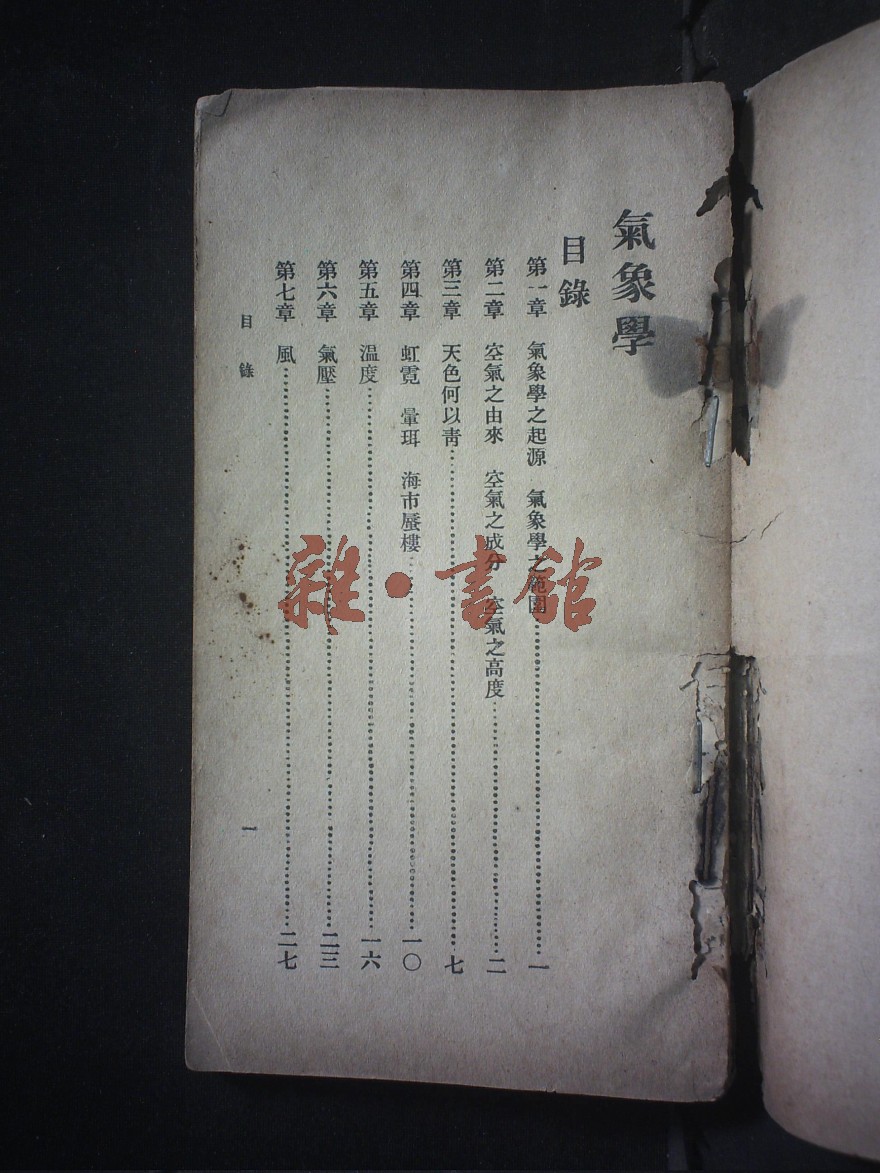 氣象學
目錄
第一章　氣象學之起源　氣象學之範圍…………一
第二章　空氣之由來　空氣之成分　空氣之高度…………二
第三章　天色何以青…………七
第四章　虹霓　暈珥　海市蜃樓…………一〇
第五章　溫度…………一六
第六章　氣壓…………二三
第七章　風…………二七
目錄
一
雜·書館